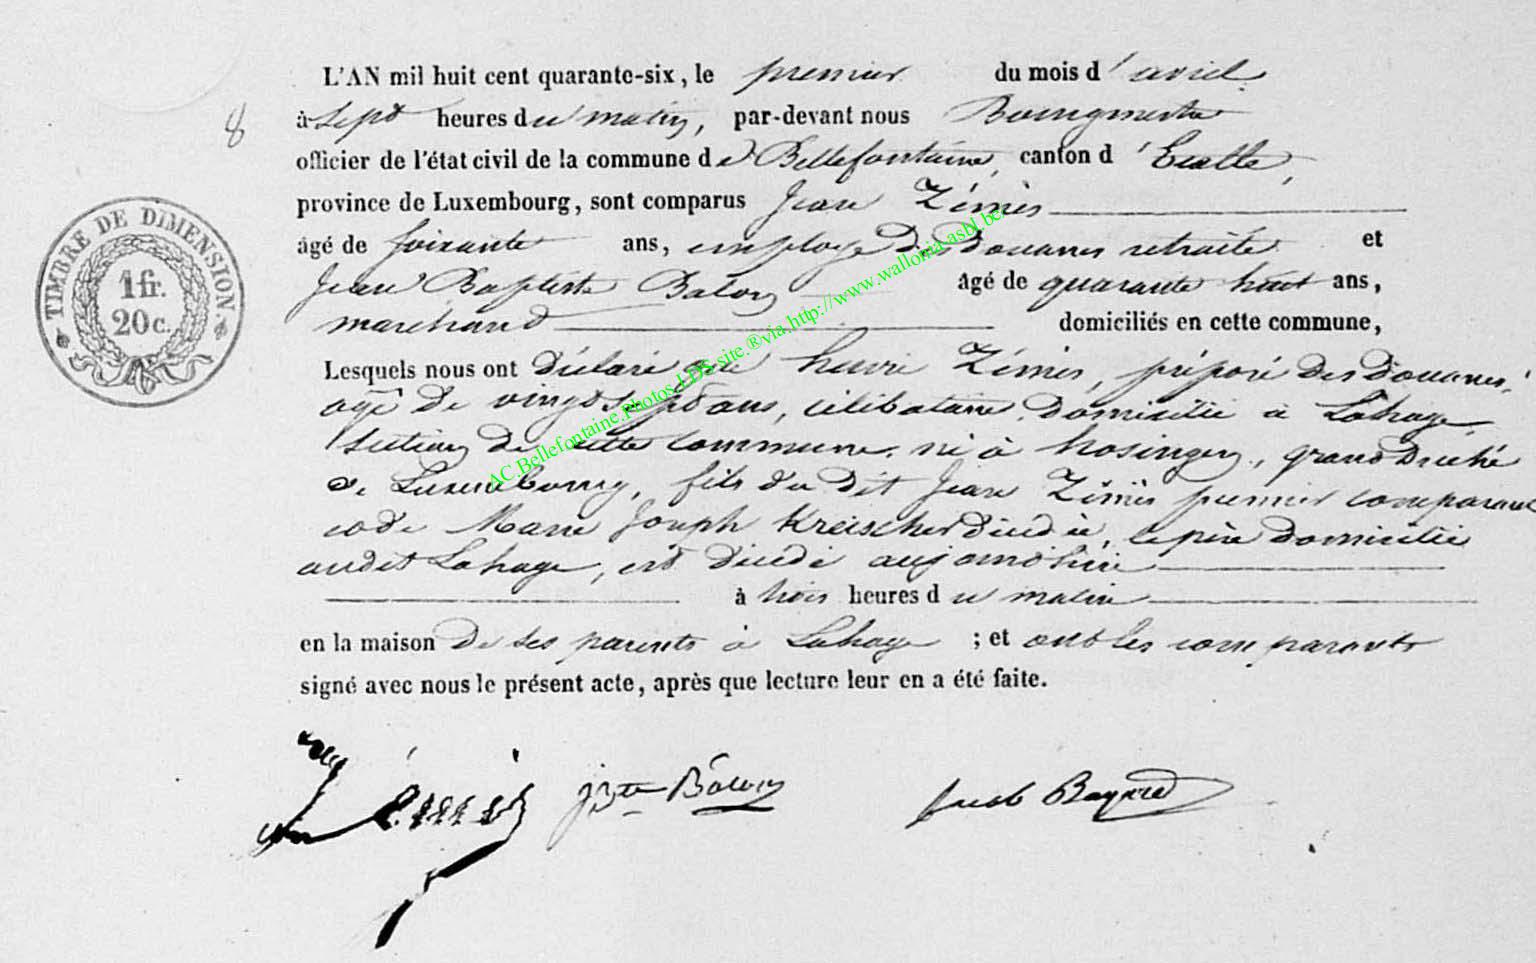 L'AN mil huit cent quarante-six, le premier du mois d'avril
8
à sept heures du matin, par-devant nous Bourgmestre
officier de l'état civil de la commune de Bellefontaine, canton d'Etalle,
province de Luxembourg, sont comparus Jean Zémès
âgé de soixante ans, employé des Douanes retraité et
Jean Baptiste Balon âgé de quarante huit ans,
marchand domiciliés en cette commune,
Lesquels nous ont déclaré que henri Zémès, préposé des Douanes,
agé de vingt sept ans, célibataire, domicilié à Lahage,
section de cette commune, né à hosingen, grand Duché
de Luxembourg, fils du dit Jean Zémès premier comparant
et de Marie Joseph Kreischer décédée, le père domicilié
audit Lahage, est décédé aujourd'hui
à trois heures du matin
en la maison de ses parents à Lahage ; et ont les comparants
signé avec nous le présent acte, après que lecture leur en a été faite.
TIMBRE DE DIMENSION.
1 fr.
20 c.
AC.Bellefontaine.Photos.LDS.site.®via.http://www.wallonia-asbl.be/
Zémès JBte Balon Bayard